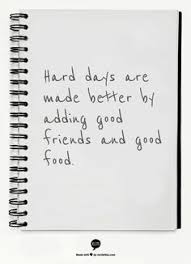 Hard days are
made better by
adding good
friends and good
food.
Made with ♥ by recitethis.com